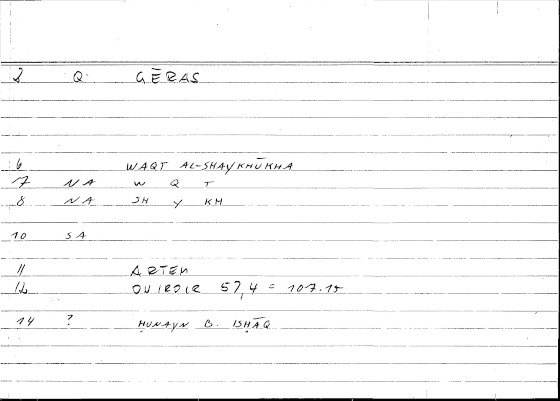 2 Q. GĒRAS
6 WAQT AL-SHAYKHŪKHA
7 NA W Q T
8 NA SH Y KH
10 SA
11 ARTEM
12 OVIRDIR 57,4 = 107.15
14 ? ḤUNAYN B. ISḤĀQ